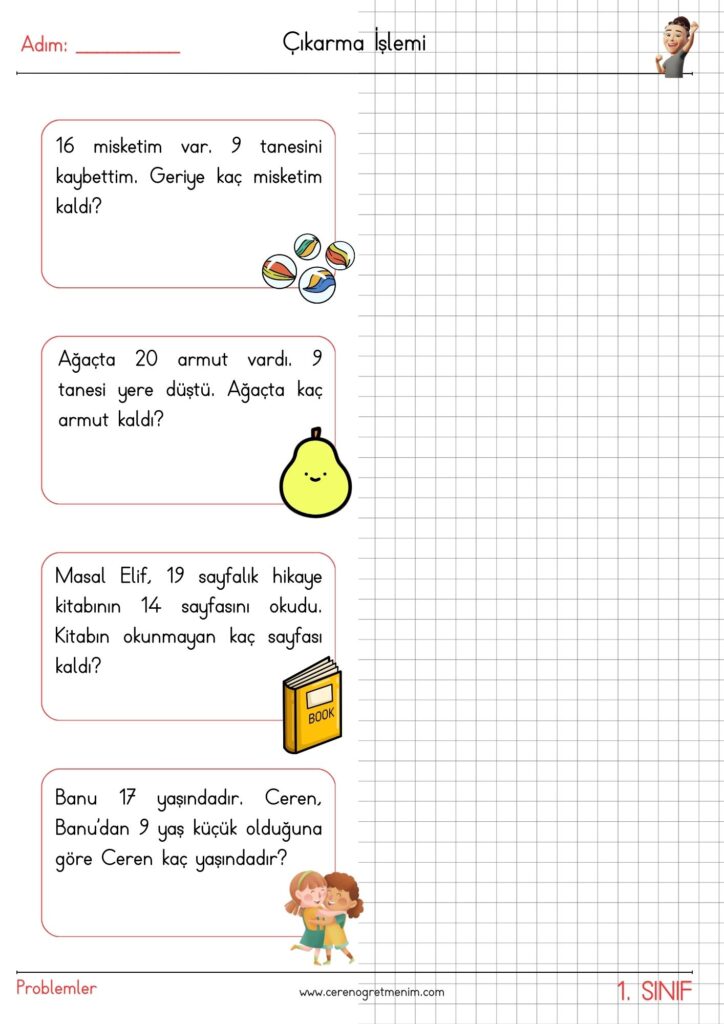 Adım: __________
Çıkarma İşlemi
16 misketim var. 9 tanesini
kaybettim. Geriye kaç misketim
kaldı?
Ağaçta 20 armut vardı. 9
tanesi yere düştü. Ağaçta kaç
armut kaldı?
Masal Elif, 19 sayfalık hikaye
kitabının 14 sayfasını okudu.
Kitabın okunmayan kaç sayfası
kaldı?
BOOK
Banu 17 yaşındadır. Ceren,
Banu'dan 9 yaş küçük olduğuna
göre Ceren kaç yaşındadır?
Problemler
www.cerenogretmenim.com
1. SINIF